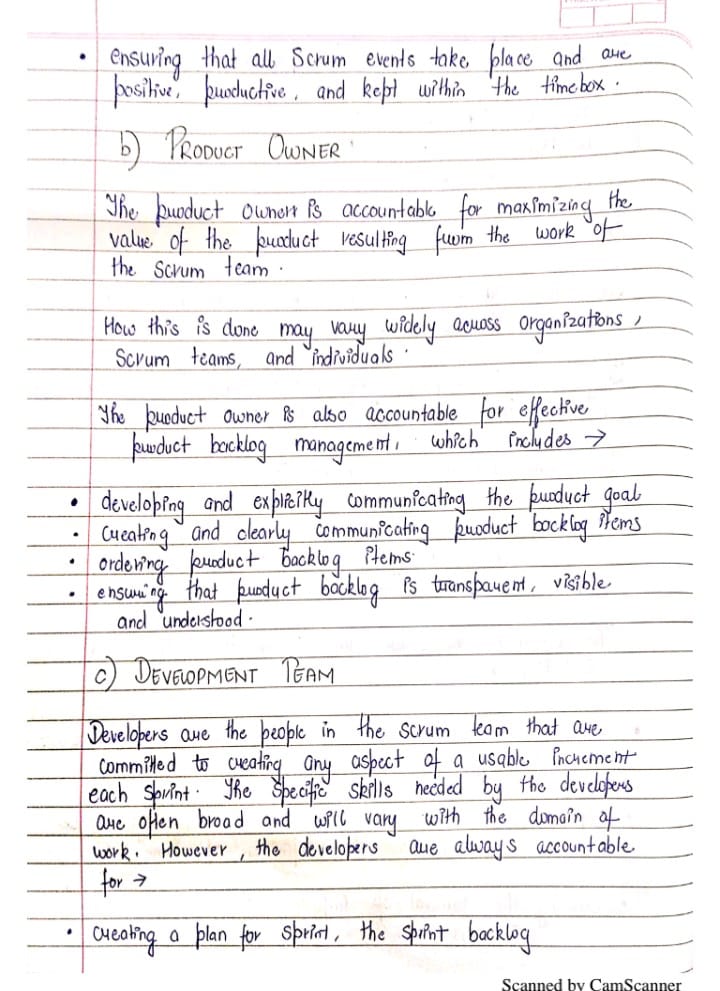 • ensuring that all Scrum events take place and are
positive, productive, and kept within the timebox.
b) PRODUCT OWNER
The product owner is accountable for maximizing the
value of the product resulting from the work of
the scrum team.
How this is done may vary widely across organizations,
Scrum teams, and individuals.
The product owner is also accountable for effective
product backlog management, which includes →
• developing and explicitly communicating the product goal
• creating and clearly communicating product backlog items
• ordering product backlog items.
• ensuring that product backlog is transparent, visible
and understood.
c) DEVELOPMENT TEAM
Developers are the people in the scrum team that are
committed to creating any aspect of a usable increment
each sprint. The specific skills needed by the developers
are often broad and will vary with the domain of
work. However, the developers are always accountable
for →
• creating a plan for sprint, the sprint backlog
Scanned by CamScanner